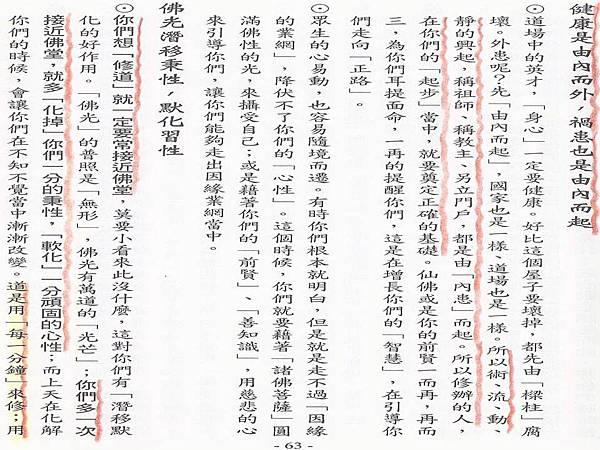 健康是由內而外，禍患也是由內而起
⊙道場中的英才，「身心」一定要健康。好比這個屋子要壞掉，都先由「樑柱」腐
壞。外患呢？先「由內而起」，國家也是一樣、道場也是一樣。所以術、流、動、
靜的興起，稱祖師、稱教主、另立門戶，都是由「內患」而起，所以修辦的人，
在你們的「起步」當中，就要奠定正確的基礎。仙佛或是你的前賢一而再，再而
三，為你們耳提面命，一再的提醒你們，這是在增長你們的「智慧」，在引導你
們走向「正路」。
⊙眾生的心易動，也容易隨境而遷。有時你們根本就明白，但是就是走不過「因緣
的業網」，降伏不了你們的「心性」。這個時候，你們就要藉著「諸佛菩薩」圓
滿佛性的光，來攝受自己；或是藉著你們的「前賢」、「善知識」，用慈悲的心
來引導你們，讓你們能夠走出因緣業網當中。
佛光潛移秉性，默化習性
⊙你們想「修道」就一定要常接近佛堂，莫要小看來此沒什麼，這對你們有「潛移默
化的好作用。「佛光」的普照是「無形」，佛光有萬道的「光芒」；你們多一次
接近佛堂，就多「化掉」你們一分的秉性，「軟化」一分頑固的心性；而上天在化解
你們的時候，會讓你們在不知不覺當中漸漸改變。道是用「每一分鐘」來修；用
- 63 -